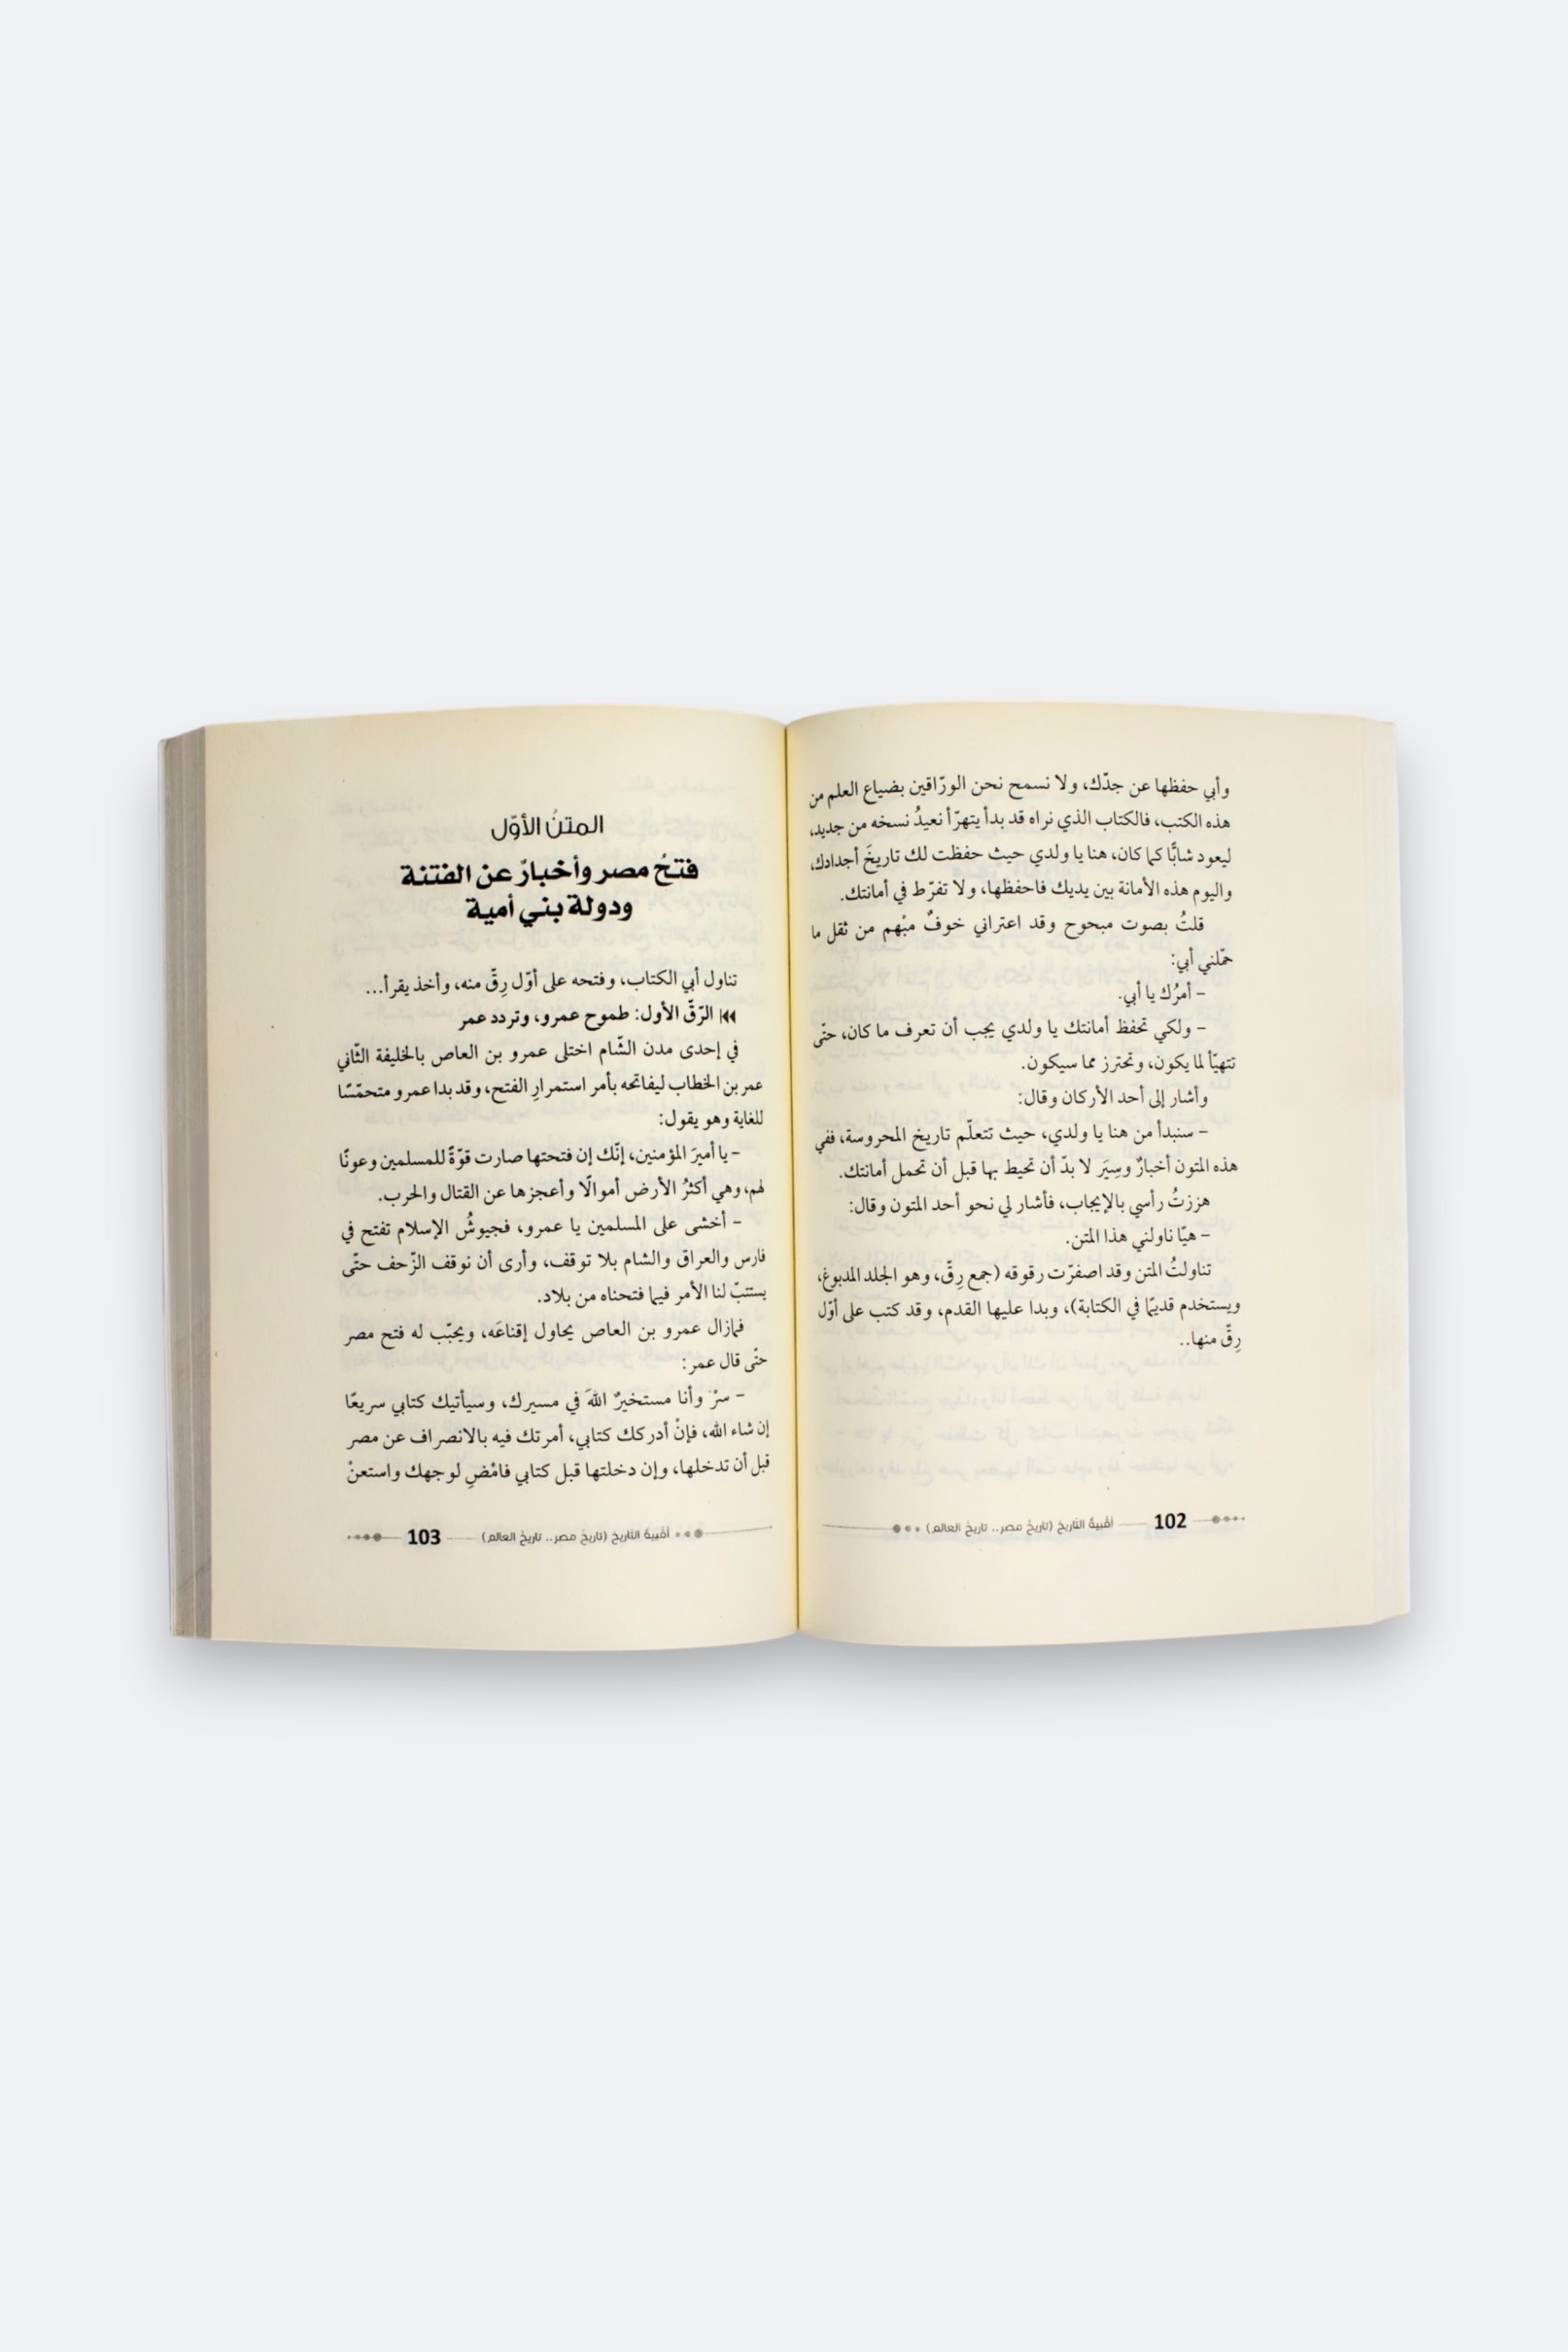 وأبي حفظها عن جدّك، ولا نسمح نحن الورّاقين بضياع العلم من
هذه الكتب، فالكتاب الذي نراه قد بدأ يتهرّأ نعيدُ نسخه من جديد،
ليعود شابًّا كما كان، هنا يا ولدي حيث حفظت لك تاريخَ أجدادك،
واليوم هذه الأمانة بين يديك فاحفظها، ولا تفرّط في أمانتك.
قلتُ بصوت مبحوح وقد اعتراني خوفٌ مبْهم من ثقل ما
حمّلني أبي:
- أمرُك يا أبي.
- ولكي تحفظ أمانتك يا ولدي يجب أن تعرف ما كان، حتّى
تتهيّأ لما يكون، وتحترز مما سيكون.
وأشار إلى أحد الأركان وقال:
- سنبدأ من هنا يا ولدي، حيث تتعلّم تاريخ المحروسة، ففي
هذه المتون أخبارٌ وسِيَر لا بدّ أن تحيط بها قبل أن تحمل أمانتك.
هززتُ رأسي بالإيجاب، فأشار لي نحو أحد المتون وقال:
- هيّا ناولني هذا المتن.
تناولتُ المتن وقد اصفرّت رقوقه (جمع رِقّ، وهو الجلد المدبوغ،
ويستخدم قديمًا في الكتابة)، وبدا عليها القدم، وقد كتب على أوّل
رِقّ منها..
102 أقبية التاريخ (تاريخ مصر.. تاريخ العالم)
المتنُ الأوّل
فتحُ مصر وأخبارٌ عن الفتنة
ودولة بني أمية
تناول أبي الكتاب، وفتحه على أوّل رِقّ منه، وأخذ يقرأ...
الرّقّ الأول: طموح عمرو، وتردد عمر
في إحدى مدن الشّام اختلى عمرو بن العاص بالخليفة الثّاني
عمر بن الخطاب ليفاتحه بأمر استمرارِ الفتح، وقد بدا عمرو متحمّسًا
للغاية وهو يقول:
- يا أميرَ المؤمنين، إنّك إن فتحتها صارت قوّةً للمسلمين وعونًا
لهم، وهي أكثرُ الأرض أموالًا وأعجزها عن القتال والحرب.
- أخشى على المسلمين يا عمرو، فجيوشُ الإسلام تفتح في
فارس والعراق والشام بلا توقف، وأرى أن نوقف الزّحف حتّى
يستتبّ لنا الأمر فيما فتحناه من بلاد.
فمازال عمرو بن العاص يحاول إقناعَه، ويحبّب له فتح مصر
حتّى قال عمر:
- سرْ وأنا مستخيرٌ اللهَ في مسيرك، وسيأتيك كتابي سريعًا
إن شاء الله، فإنْ أدركك كتابي، أمرتك فيه بالانصراف عن مصر
قبل أن تدخلها، وإن دخلتها قبل كتابي فامْضِ لوجهك واستعنْ
أقبية التاريخ (تاريخ مصر.. تاريخ العالم) 103